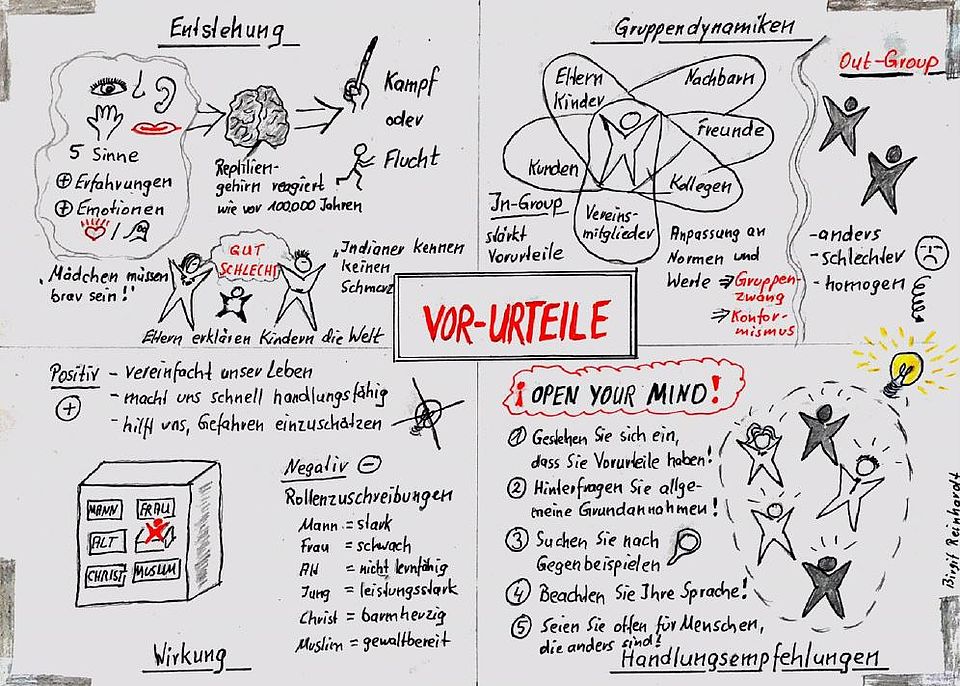 Entstehung
5 Sinne
+ Erfahrungen
+ Emotionen
/
Reptilien-
gehirn reagiert
wie vor 100.000 Jahren
Kampf
oder
Flucht
„Mädchen müssen
brav sein!"
GUT
SCHLECHT
„Indianer kennen
keinen
Schmerz
Eltern erklären Kindern die Welt
Gruppendynamiken
Eltern
Kinder
Nachbarn
Freunde
Kollegen
Vereins-
mitglieder
Kunden
In-Group
stärkt
Vorurteile
Anpassung an
Normen und
Werte ⇒ Gruppen-
zwang
⇒ Konfor-
mismus
Out-Group
- anders
- schlechter
- homogen
VOR-URTEILE
Positiv - vereinfacht unser Leben
+ - macht uns schnell handlungsfähig
- hilft uns, Gefahren einzuschätzen
MANN FRAU
ALT
CHRIST MUSLIM
Negativ -
Rollenzuschreibungen
Mann = stark
Frau = schwach
Alt = nicht lernfähig
Jung = leistungsstark
Christ = barmherzig
Muslim = gewaltbereit
Wirkung
¡ OPEN YOUR MIND!
1 Gestehen Sie sich ein,
dass Sie Vorurteile haben!
2 Hinterfragen Sie allge-
meine Grundannahmen!
3 Suchen Sie nach
Gegenbeispielen
4 Beachten Sie Ihre Sprache!
5 Seien Sie offen für Menschen,
die anders sind!
Handlungsempfehlungen
Birgit Reinhardt